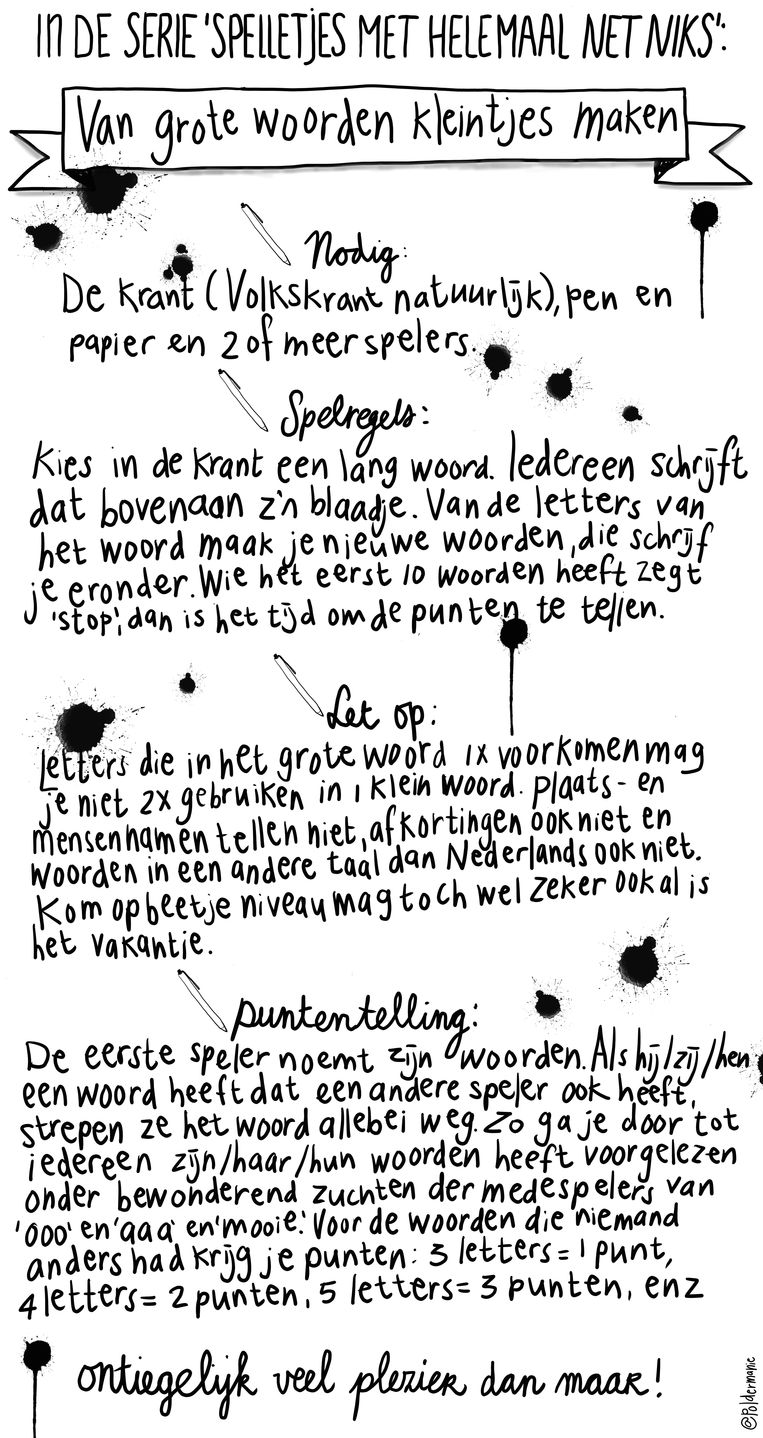 IN DE SERIE 'SPELLETJES MET HELEMAAL NET NIKS':
Van grote woorden kleintjes maken
Nodig:
De krant (Volkskrant natuurlijk), pen en
papier en 2 of meer spelers.
Spelregels:
Kies in de krant een lang woord. Iedereen schrijft
dat bovenaan z'n blaadje. Van de letters van
het woord maak je nieuwe woorden, die schrijf
je eronder. Wie het eerst 10 woorden heeft zegt
'stop', dan is het tijd om de punten te tellen.
Let op:
Letters die in het grote woord 1x voorkomen mag
je niet 2x gebruiken in 1 klein woord. Plaats- en
mensennamen tellen niet, afkortingen ook niet en
woorden in een andere taal dan Nederlands ook niet.
Kom op beetje niveau mag toch wel zeker ook al is
het vakantie.
puntentelling:
De eerste speler noemt zijn woorden. Als hij/zij/hen
een woord heeft dat een andere speler ook heeft,
strepen ze het woord allebei weg. Zo ga je door tot
iedereen zijn/haar/hun woorden heeft voorgelezen
onder bewonderend zuchten der medespelers van
'ooo' en 'aaa' en 'mooie'. Voor de woorden die niemand
anders had krijg je punten: 3 letters = 1 punt,
4 letters = 2 punten, 5 letters = 3 punten, enz
ontiegelijk veel plezier dan maar!
@Poldermanic